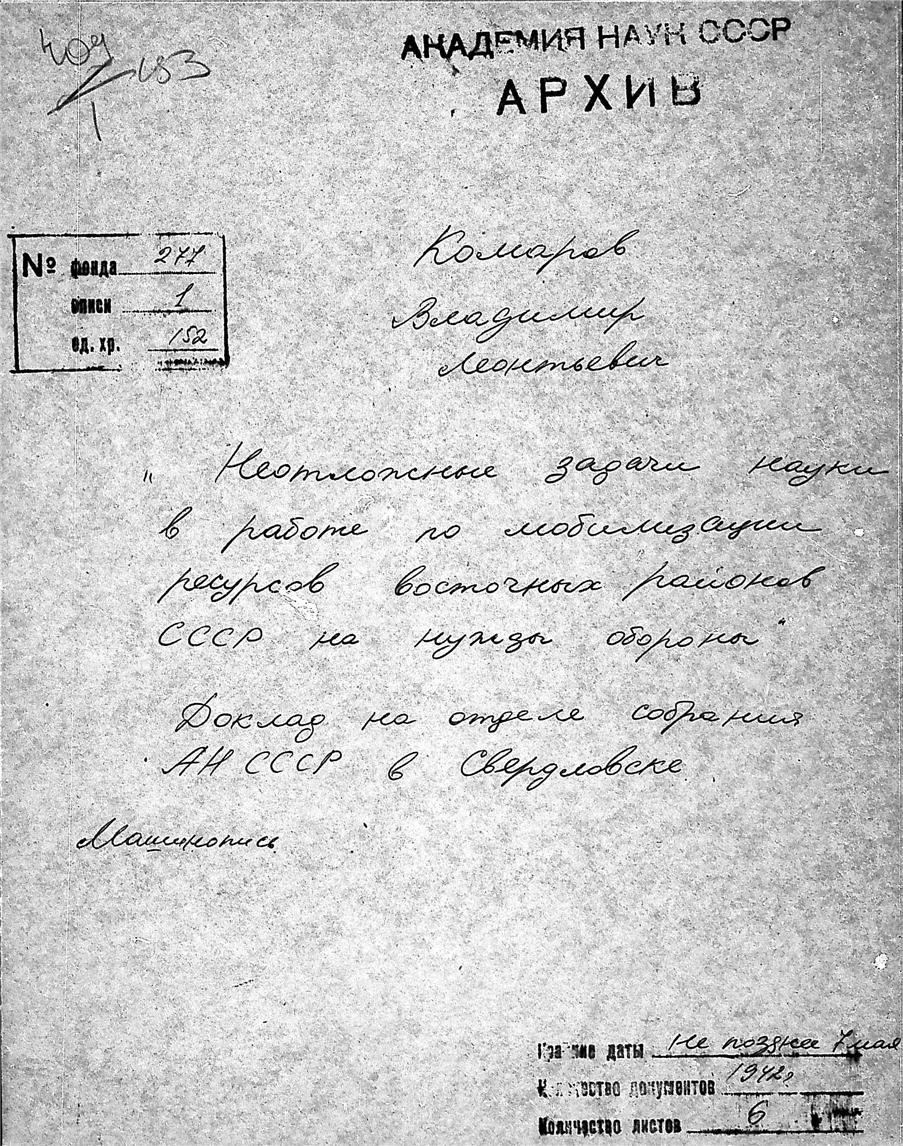 АКАДЕМИЯ НАУК СССР
АРХИВ
№ фонда 277
описи 1
ед. хр. 152
Комаров
Владимир
Леонтьевич
„ Неотложные задачи науки
в работе по мобилизации
ресурсов восточных районов
СССР на нужды обороны"
Доклад на отделе собрания
АН СССР в Свердловске
Машинопись
Крайние даты Не позднее 7 мая
1942г
Количество документов
Количество листов 6